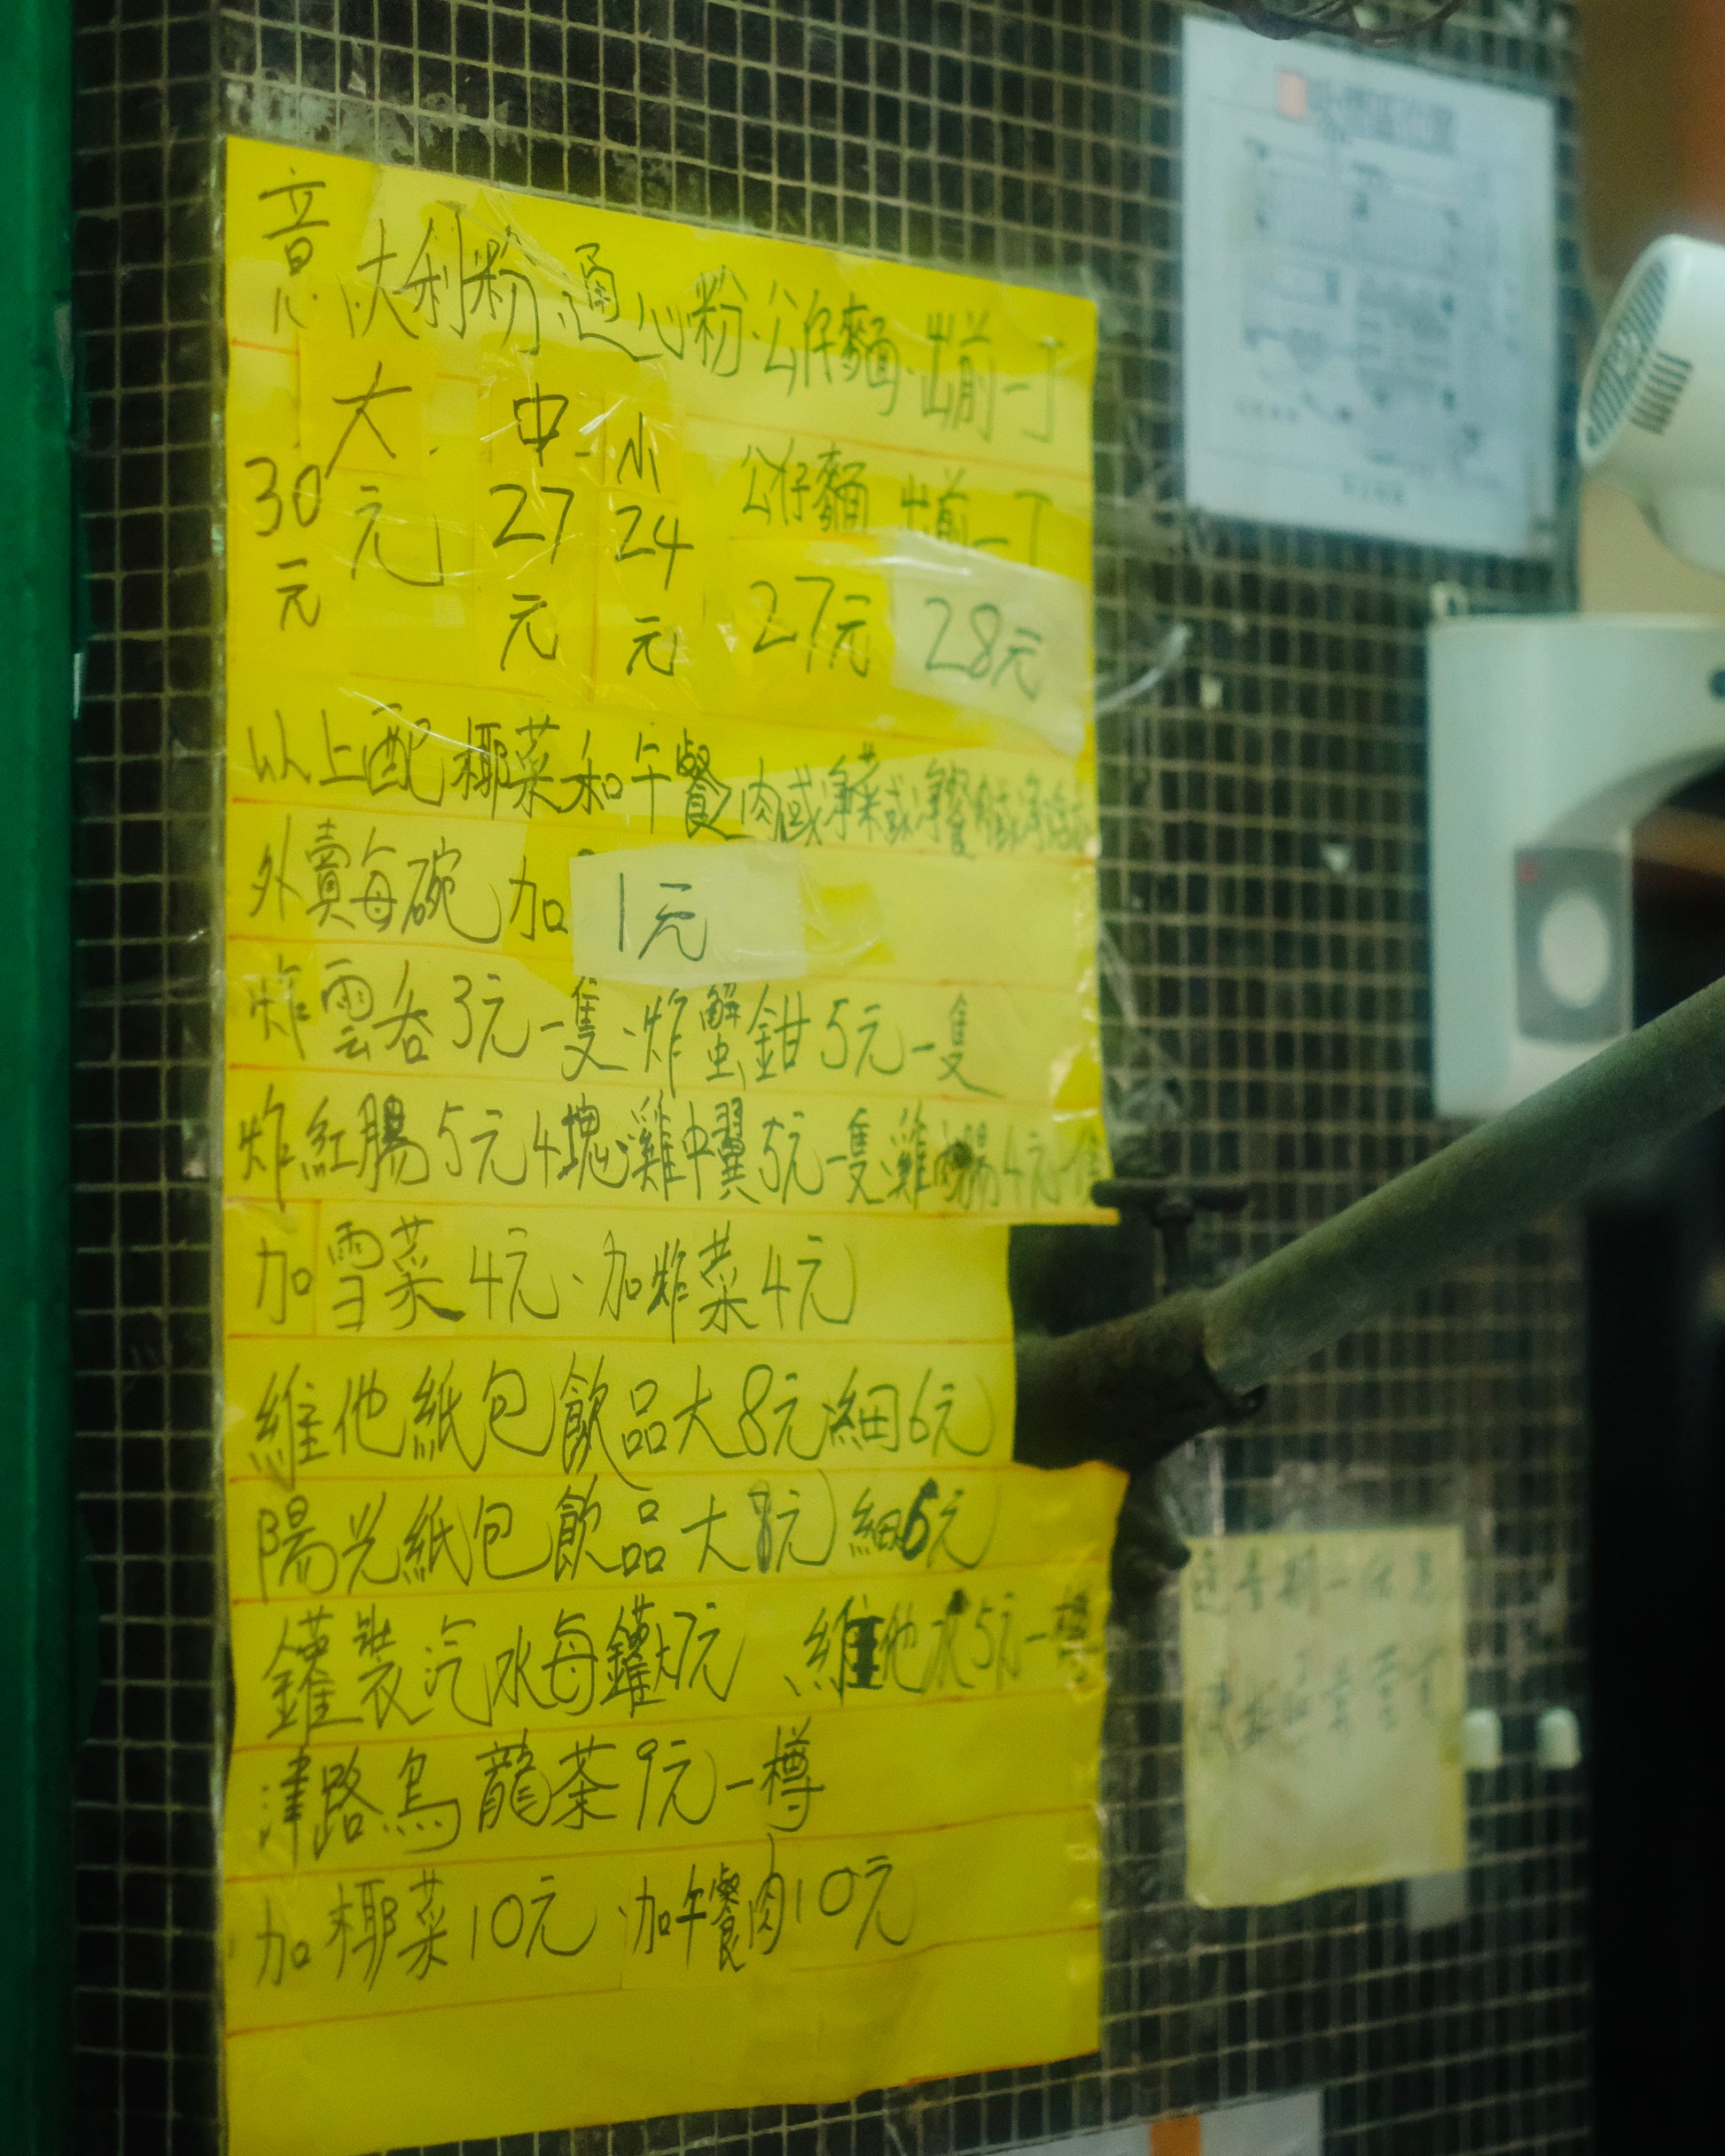 意大利粉.通心粉.公仔麵.出前一丁
大 中 小 公仔麵 出前一丁
30元 元 27元 24元 27元 28元
以上配椰菜和午餐肉或淨菜或淨餐
外賣每碗加1元
炸雲吞3元一隻、炸蟹鉗5元一隻
炸紅腸5元4塊、雞中翼5元一隻、雞肉腸4元一隻
加雪菜4元、加炸菜4元
維他紙包飲品大8元細6元
陽光紙包飲品大8元細6元
鑵裝汽水每鑵7元 維他水5元一樽
津路烏龍茶9元一樽
加椰菜10元.加午餐肉10元